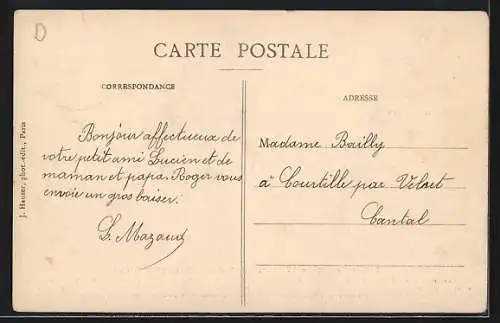 D
CARTE POSTALE
CORRESPONDANCE
Bonjour affectueux de
votre petit ami Lucien et de
maman et papa. Roger vous
envoie un gros baiser.
L. Mazaud
ADRESSE
Madame Bailly
à Courtille par Vebret
Cantal
J. Hauser, phot.-édit., Paris